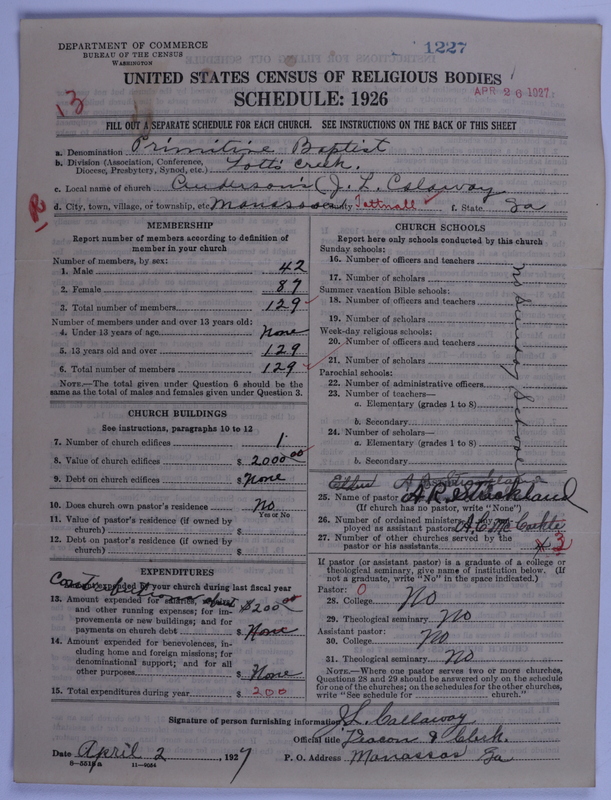 DEPARTMENT OF COMMERCE
BUREAU OF THE CENSUS
WASHINGTON
1227
UNITED STATES CENSUS OF RELIGIOUS BODIES
SCHEDULE: 1926
APR 26 1927
13
FILL OUT A SEPARATE SCHEDULE FOR EACH CHURCH. SEE INSTRUCTIONS ON THE BACK OF THIS SHEET
a. Denomination Primitive Baptist
b. Division (Association, Conference, Diocese, Presbytery, Synod, etc.) Lotts Creek.
c. Local name of church Anderson's (J. L. Calaway
R
d. City, town, village, or township, etc. Manassas Tattnall f. State Ga
MEMBERSHIP
Report number of members according to definition of member in your church
Number of members, by sex:
1. Male 42
2. Female 87
3. Total number of members 129
Number of members under and over 13 years old:
4. Under 13 years of age None
5. 13 years old and over 129
6. Total number of members 129
NOTE.—The total given under Question 6 should be the same as the total of males and females given under Question 3.
CHURCH BUILDINGS
See instructions, paragraphs 10 to 12
7. Number of church edifices 1
8. Value of church edifices $ 2000 00
9. Debt on church edifices $ None
10. Does church own pastor's residence No
Yes or No
11. Value of pastor's residence (if owned by church) $
12. Debt on pastor's residence (if owned by church) $
EXPENDITURES
Amount expended by your church during last fiscal year
13. Amount expended for salaries, and other running expenses; for improvements or new buildings; and for payments on church debt $200 00 $ None
14. Amount expended for benevolences, including home and foreign missions; for denominational support; and for all other purposes $ None
15. Total expenditures during year $ 200
CHURCH SCHOOLS
Report here only schools conducted by this church
Sunday schools:
16. Number of officers and teachers
17. Number of scholars
Summer vacation Bible schools:
18. Number of officers and teachers
19. Number of scholars
Week-day religious schools:
20. Number of officers and teachers
21. Number of scholars
Parochial schools:
22. Number of administrative officers
23. Number of teachers—
a. Elementary (grades 1 to 8)
b. Secondary
24. Number of scholars—
a. Elementary (grades 1 to 8)
b. Secondary
No Sunday School
25. Name of pastor A. R. Strickland
(If church has no pastor, write "None")
26. Number of ordained ministers employed as assistant pastors
27. Number of other churches served by the pastor or his assistants 3
If pastor (or assistant pastor) is a graduate of a college or theological seminary, give name of institution below. (If not a graduate, write "No" in the space indicated.)
Pastor: O
28. College No
29. Theological seminary No
Assistant pastor:
30. College No
31. Theological seminary No
NOTE.—Where one pastor serves two or more churches, Questions 28 and 29 should be answered only on the schedule for one of the churches; on the schedules for the other churches, write "See schedule for church."
Signature of person furnishing information J. L. Callaway
Official title Deacon & Clerk.
Date April 2, 1927
P. O. Address Manassas Ga
8-5518a 11-9064